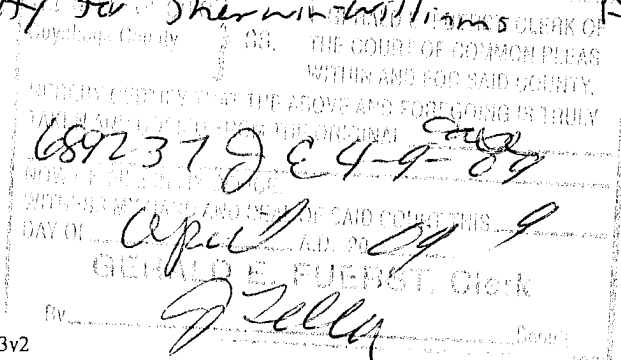 for Sherwin-Williams
CLERK OF
Cuyahoga County } SS. THE COURT OF COMMON PLEAS
WITHIN AND FOR SAID COUNTY.
HEREBY CERTIFY THAT THE ABOVE AND FOREGOING IS TRULY
TAKEN AND FROM THE ORIGINAL
689237 J E 4-9-09
NOW ON FILE IN MY OFFICE.
WITNESS MY HAND AND SEAL OF SAID COURT THIS 9
DAY OF April A.D. 20 09
GERALD E. FUERST, Clerk
By Deputy
3v2